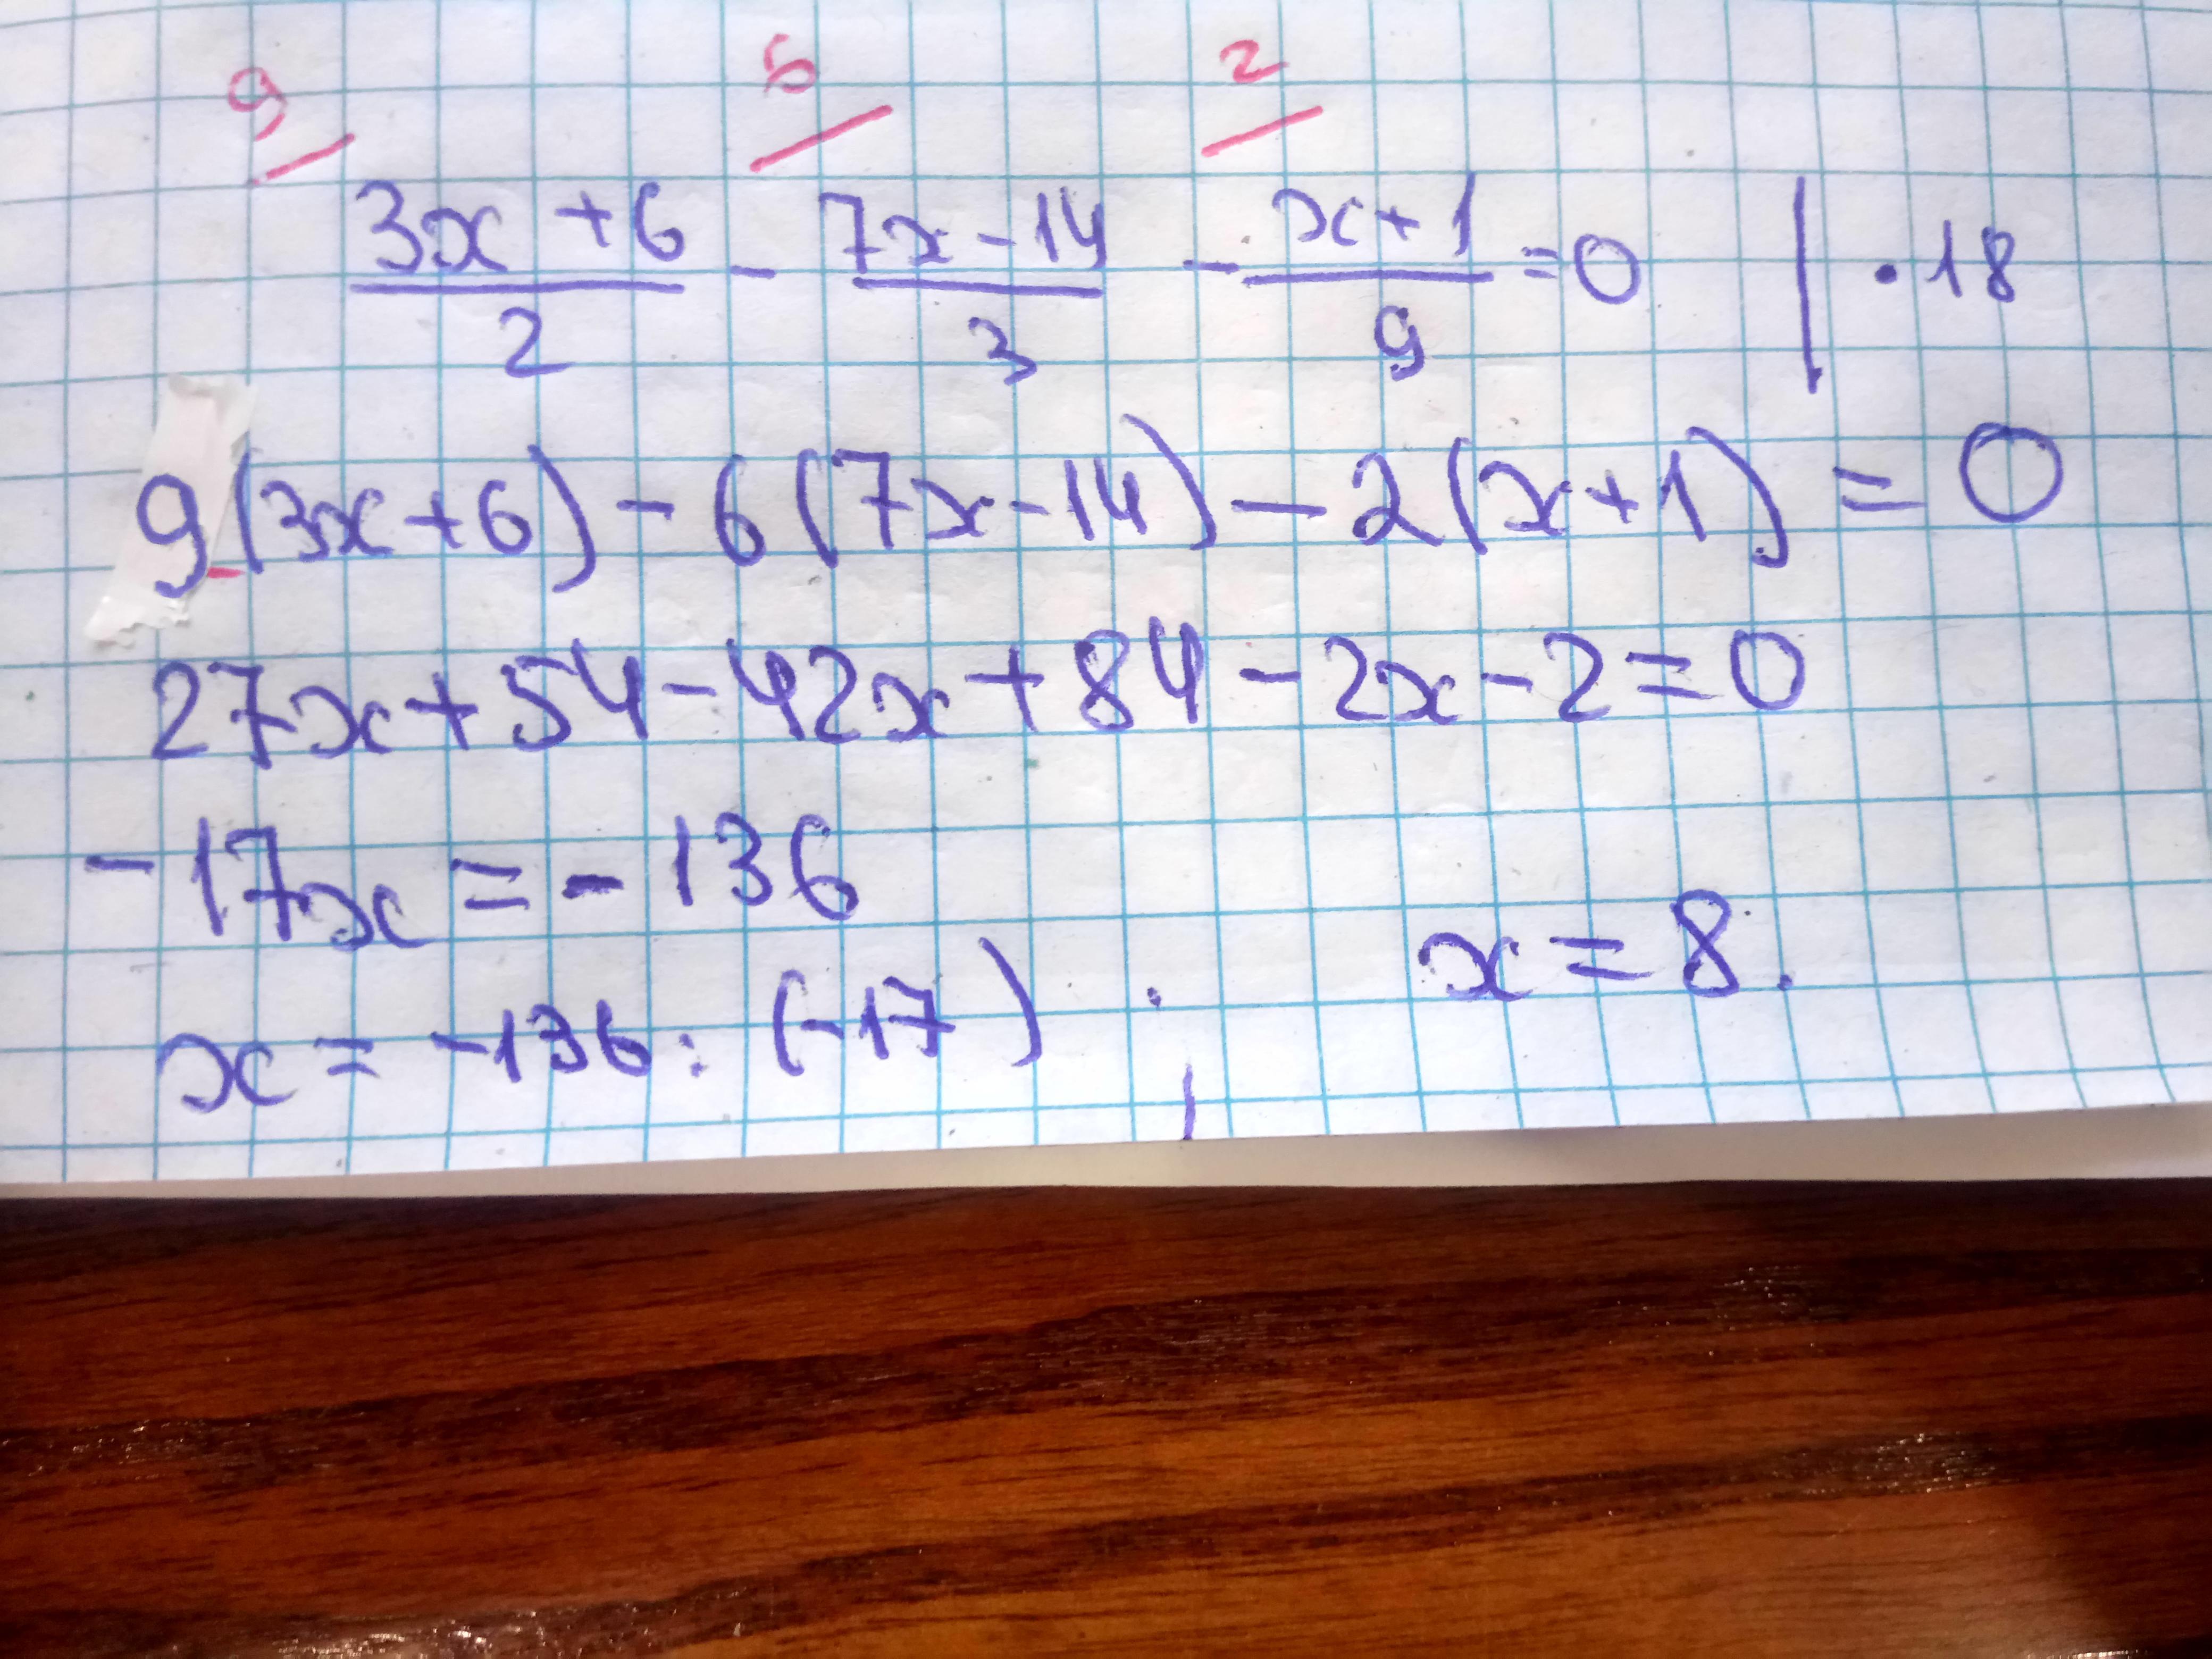 9/ 6/ 2/
(3x+6)/2 - (7x-14)/3 - (x+1)/9 = 0 | · 18
9(3x+6) - 6(7x-14) - 2(x+1) = 0
27x + 54 - 42x + 84 - 2x - 2 = 0
-17x = -136
x = -136 : (-17)
x = 8.